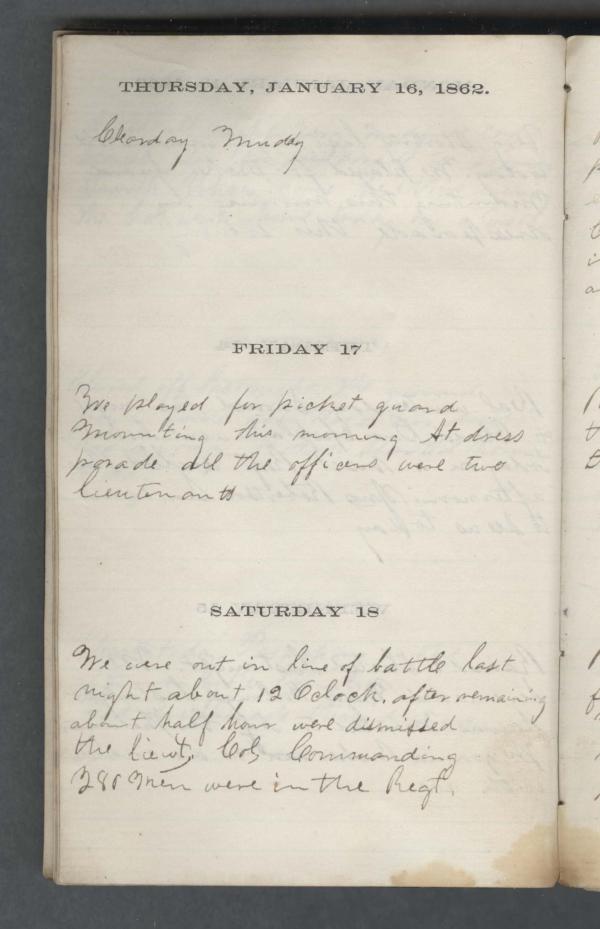 THURSDAY, JANUARY 16, 1862.
Clearday Muddy
FRIDAY 17
We played for picket guard
Mounting this morning At dress
parade all the officers were two
lieutenants
SATURDAY 18
We were out in line of battle last
night about 12 Oclock. after remaining
about half hour were dismissed
the lieut, Col, Commanding
380 Men were in the Regt.